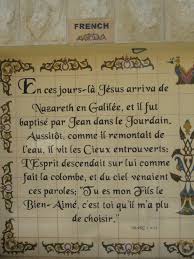 FRENCH
En ces jours-là Jésus arriva de
Nazareth en Galilée, et il fut
baptisé par Jean dans le Jourdain.
Aussitôt, comme il remontait de
l'eau, il vit les Cieux entrouverts;
L'Esprit descendait sur lui comme
fait la colombe, et du ciel venaient
ces paroles; "Tu es mon Fils le
Bien-Aimé, c'est toi qu'il m'a plu
de choisir."